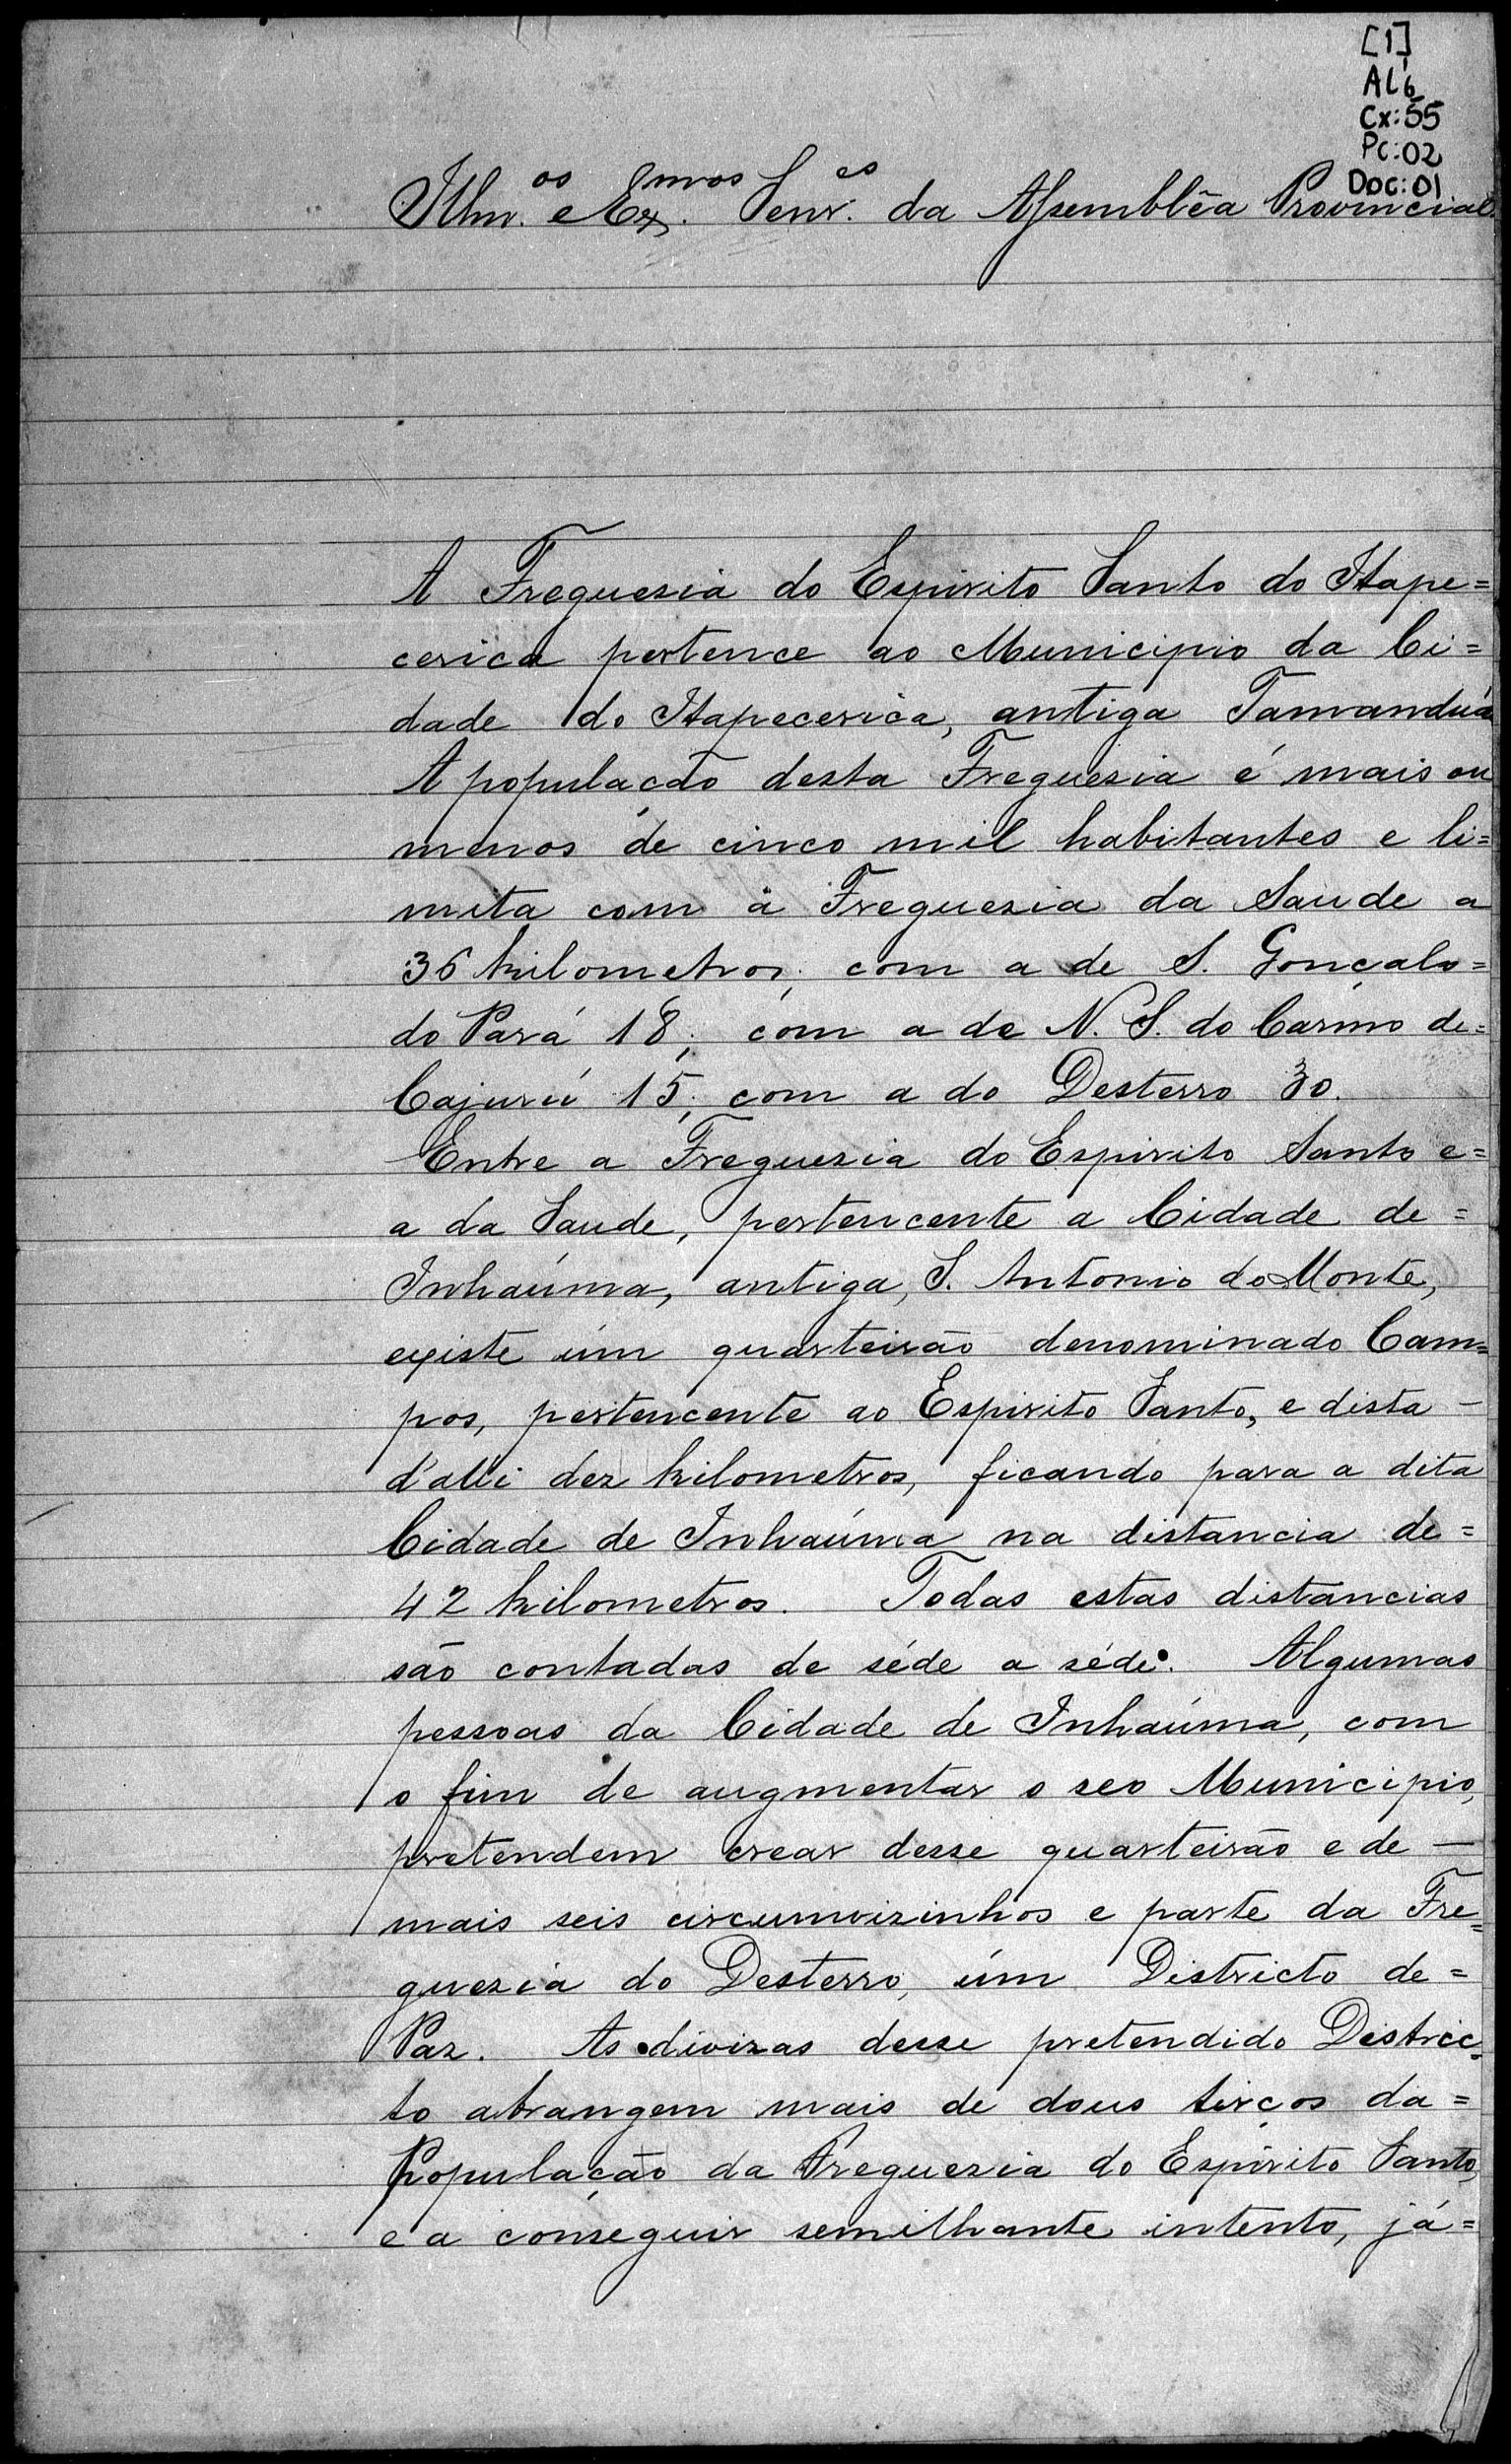 [1]
AL6
Cx:55
Pc:02
Doc:01
Illm.os e Ex.mos Senr.es da Assemblêa Provincial
A Freguesia do Espirito Santo do Itape=
cerica pertence ao Municipio da Ci=
dade do Itapecerica, antiga Tamanduá
A população desta Freguesia é mais ou
menos de cinco mil habitantes e li=
mita com á Freguesia da Saude a
36 kilometros; com a de S. Gonçalo=
do Pará 18; com a de N. S. do Carmo de=
Cajurú 15; com a do Desterro 30.
Entre a Freguezia do Espirito Santo e=
a da Saude, pertencente a Cidade de=
Inhaúma, antiga, S. Antonio do Monte,
existe úm quarteirão denominado Cam=
pos, pertencente ao Espirito Santo, e dista -
d'alli dez kilometros, ficando para a dita
Cidade de Inhaúma na distancia de=
42 kilometros. Todas estas distancias
são contadas de séde a séde. Algumas
pessoas da Cidade de Inhaúma, com
o fim de augmentar o seo Municipio,
pretendem crear desse quarteirão e de —
mais seis circumvizinhos e parte da Fre=
guezia do Desterro, úm Districto de=
Paz. As divizas desse pretendido Distric=
to abrangem mais de dous terços da=
População da Freguezia do Espirito Santo,
e a conseguir semilhante intento, já=